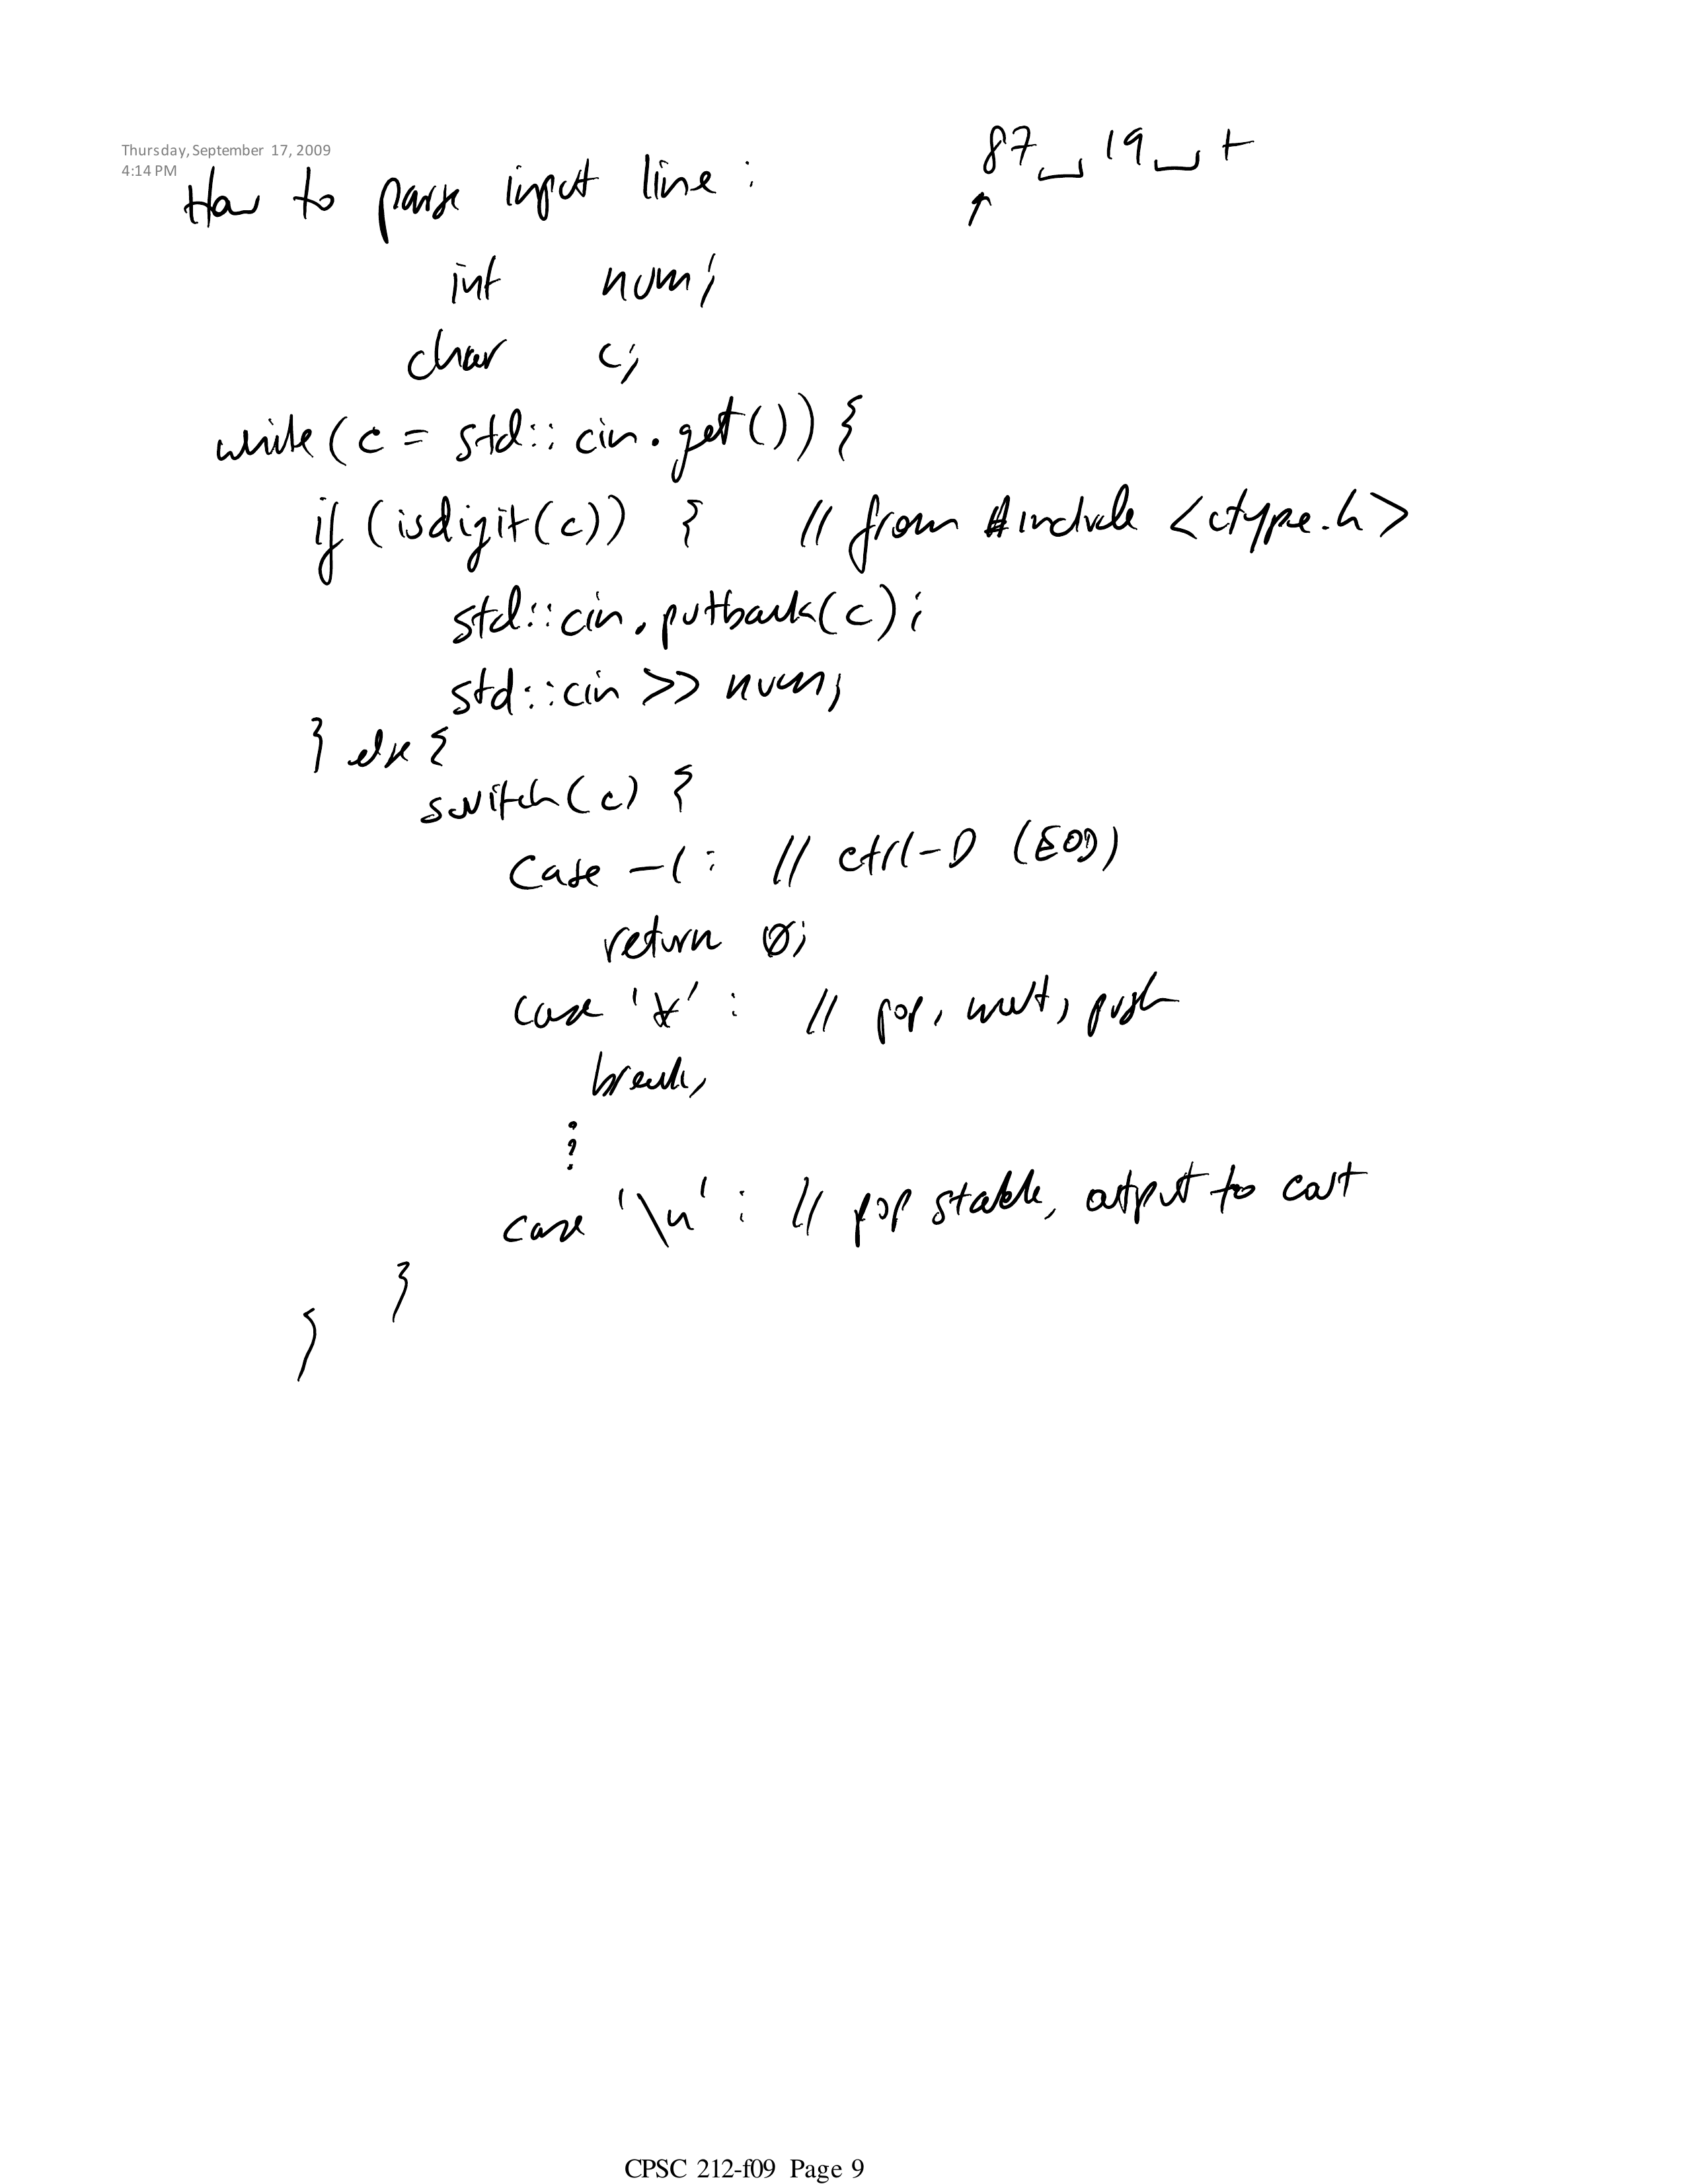 Thursday, September 17, 2009
4:14 PM
How to parse input line :
87␣19␣+
int num;
char c;
while (c = std::cin.get()) {
if (isdigit(c)) { // from #include <ctype.h>
std::cin.putback(c);
std::cin >> num;
} else {
switch(c) {
case -1: // ctrl-D (EOD)
return 0;
case '*' : // pop, mult, push
break;
⋮
case '\n' : // pop stack, output to cout
}
}
CPSC 212-f09 Page 9